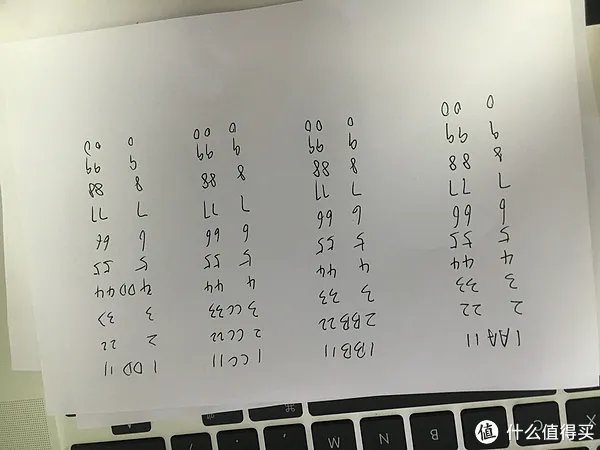 1 AA 11 1 BB 11 1 CC 11 1 DD 11
2 22 2 BB 22 2 CC 22 2 22
3 33 3 33 3 CC 33 3 33
4 44 4 44 4 44 4 DD 44
5 55 5 55 5 55 5 55
6 66 6 66 6 66 6 66
7 77 7 77 7 77 7 77
8 88 8 88 8 88 8 88
9 99 9 99 9 99 9 99
0 00 0 00 0 00 0 00
X C V B N M
⌘
值 什么值得买